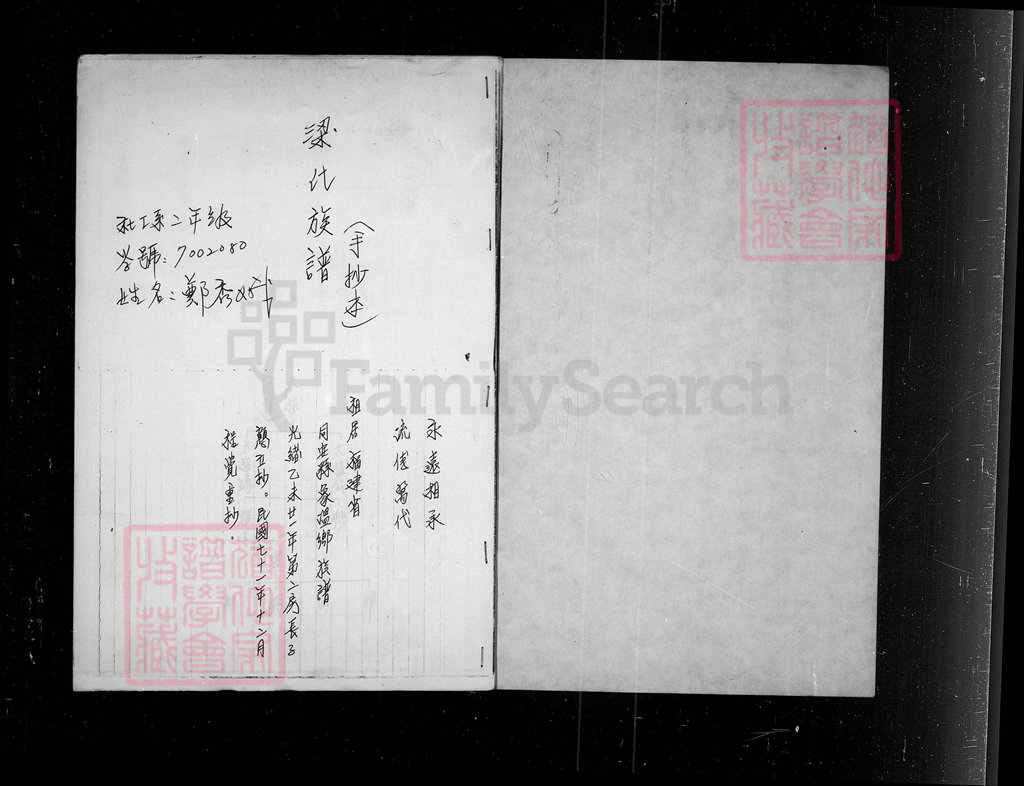 梁氏族譜
(手抄本)
社工系二年級
學號:7002080
姓名:鄭秀
永遠相承
流傳萬代
祖居福建省
同安縣 鄉族譜
光緒乙未廿一年第二房長子
五抄。民國七十一年十二月
程 重抄。
譜學會
收藏
FamilySearch
譜學會
收藏